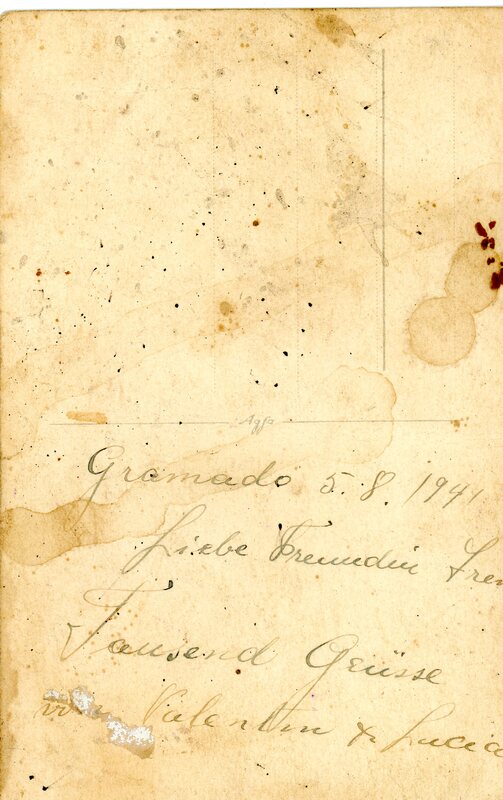 Agfa
Gramado 5.8.1941
Liebe Freundin
Tausend Grüsse
von Valentin & Lucia